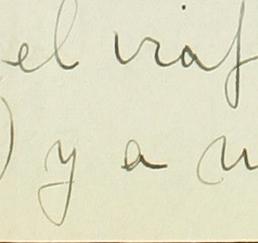 el viaj
) y a